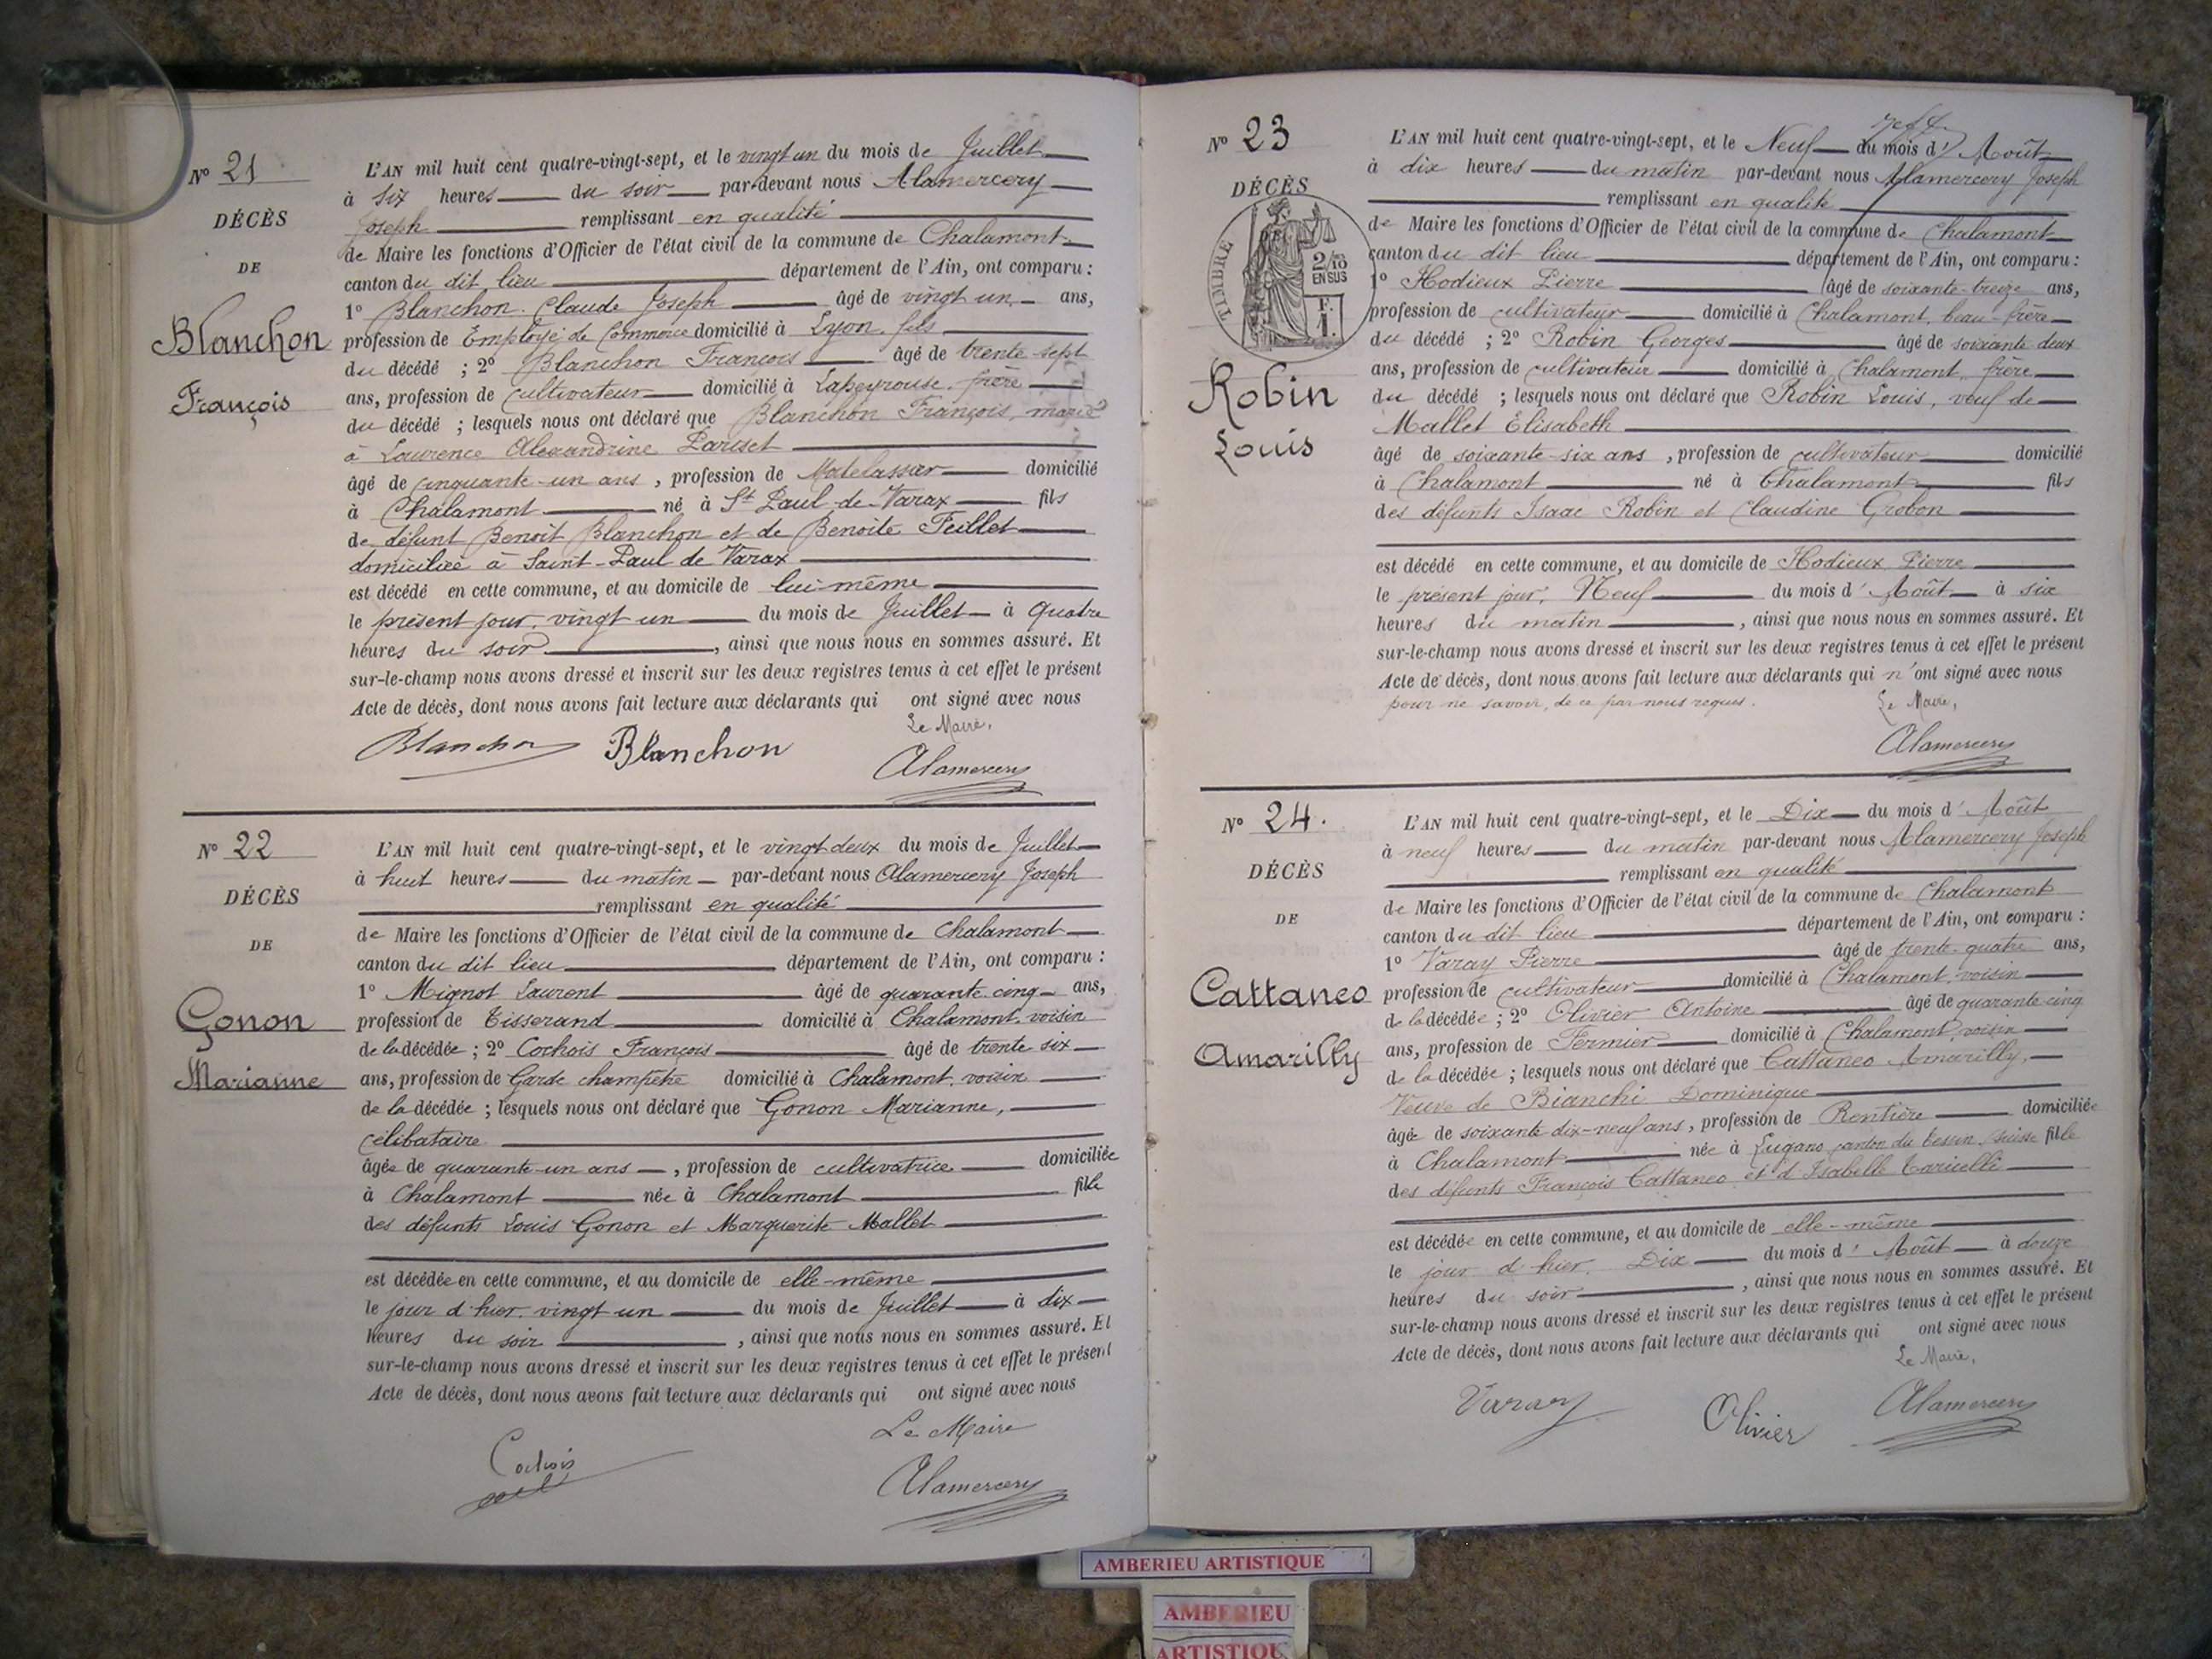 Nº 21
DÉCÈS
DE
Blanchon
François
L'AN mil huit cent quatre-vingt-sept, et le vingt un du mois de Juillet
à six heures du soir par-devant nous Alamercery
Joseph remplissant en qualité
de Maire les fonctions d'Officier de l'état civil de la commune de Chalamont
canton du dit lieu département de l'Ain, ont comparu :
1º Blanchon Claude Joseph âgé de vingt un ans,
profession de Employé de Commerce domicilié à Lyon, fils
du décédé ; 2º Blanchon François âgé de trente sept
ans, profession de cultivateur domicilié à Lapeyrouse, frère
du décédé ; lesquels nous ont déclaré que Blanchon François, marié
à Laurence Alexandrine Pariset
âgé de cinquante-un ans, profession de Matelasser domicilié
à Chalamont né à St Paul-de-Varax fils
de défunt Benoit Blanchon et de Benoite Feillet
domiciliée à Saint-Paul de Varax
est décédé en cette commune, et au domicile de lui-même
le présent jour, vingt un du mois de Juillet à quatre
heures du soir, ainsi que nous nous en sommes assuré. Et
sur-le-champ nous avons dressé et inscrit sur les deux registres tenus à cet effet le présent
Acte de décès, dont nous avons fait lecture aux déclarants qui ont signé avec nous
Le Maire,
Blanchon Blanchon Alamercery
Nº 22
DÉCÈS
DE
Gonon
Marianne
L'AN mil huit cent quatre-vingt-sept, et le vingt deux du mois de Juillet
à huit heures du matin par-devant nous Alamercery Joseph
remplissant en qualité
de Maire les fonctions d'Officier de l'état civil de la commune de Chalamont
canton du dit lieu département de l'Ain, ont comparu :
1º Mignot Laurent âgé de quarante-cinq ans,
profession de Tisserand domicilié à Chalamont, voisin
de la décédée ; 2º Cochois François âgé de trente six
ans, profession de Garde champêtre domicilié à Chalamont, voisin
de la décédée ; lesquels nous ont déclaré que Gonon Marianne,
célibataire
âgée de quarante-un ans, profession de cultivatrice domiciliée
à Chalamont née à Chalamont fille
des défunts Louis Gonon et Marguerite Mallet
est décédée en cette commune, et au domicile de elle-même
le jour d'hier, vingt un du mois de Juillet à dix
heures du soir, ainsi que nous nous en sommes assuré. Et
sur-le-champ nous avons dressé et inscrit sur les deux registres tenus à cet effet le présent
Acte de décès, dont nous avons fait lecture aux déclarants qui ont signé avec nous
Le Maire
Cochois Alamercery
Nº 23
DÉCÈS
TIMBRE
2/10
EN SUS
F.
1.
Robin
Louis
L'AN mil huit cent quatre-vingt-sept, et le Neuf du mois d' Août
à dix heures du matin par-devant nous Alamercery Joseph
remplissant en qualité
de Maire les fonctions d'Officier de l'état civil de la commune de Chalamont
canton du dit lieu département de l'Ain, ont comparu :
1º Hodieux Pierre âgé de soixante-treize ans,
profession de cultivateur domicilié à Chalamont, beau-frère
du décédé ; 2º Robin Georges âgé de soixante deux
ans, profession de cultivateur domicilié à Chalamont, frère
du décédé ; lesquels nous ont déclaré que Robin Louis, veuf de
Mallet Elisabeth
âgé de soixante-six ans, profession de cultivateur domicilié
à Chalamont né à Chalamont fils
des défunts Isaac Robin et Claudine Grobon
est décédé en cette commune, et au domicile de Hodieux Pierre
le présent jour, Neuf du mois d' Août à six
heures du matin, ainsi que nous nous en sommes assuré. Et
sur-le-champ nous avons dressé et inscrit sur les deux registres tenus à cet effet le présent
Acte de décès, dont nous avons fait lecture aux déclarants qui n'ont signé avec nous
pour ne savoir, de ce par nous requis. Le Maire,
Alamercery
Nº 24.
DÉCÈS
DE
Cattaneo
Amarilly
L'AN mil huit cent quatre-vingt-sept, et le Dix du mois d' Août
à neuf heures du matin par-devant nous Alamercery Joseph
remplissant en qualité
de Maire les fonctions d'Officier de l'état civil de la commune de Chalamont
canton du dit lieu département de l'Ain, ont comparu :
1º Varay Pierre âgé de trente-quatre ans,
profession de cultivateur domicilié à Chalamont, voisin
de la décédée ; 2º Olivier Antoine âgé de quarante-cinq
ans, profession de Fermier domicilié à Chalamont, voisin
de la décédée ; lesquels nous ont déclaré que Cattaneo Amarilly,
Veuve de Bianchi Dominique
âgée de soixante dix-neuf ans, profession de Rentière domiciliée
à Chalamont née à Lugano canton du tessin, suisse fille
des défunts François Cattaneo et d'Isabelle Taricelli
est décédée en cette commune, et au domicile de elle-même
le jour d'hier, Dix du mois d' Août à douze
heures du soir, ainsi que nous nous en sommes assuré. Et
sur-le-champ nous avons dressé et inscrit sur les deux registres tenus à cet effet le présent
Acte de décès, dont nous avons fait lecture aux déclarants qui ont signé avec nous
Le Maire,
Varay Olivier Alamercery
AMBERIEU ARTISTIQUE
AMBERIEU
ARTISTIQU